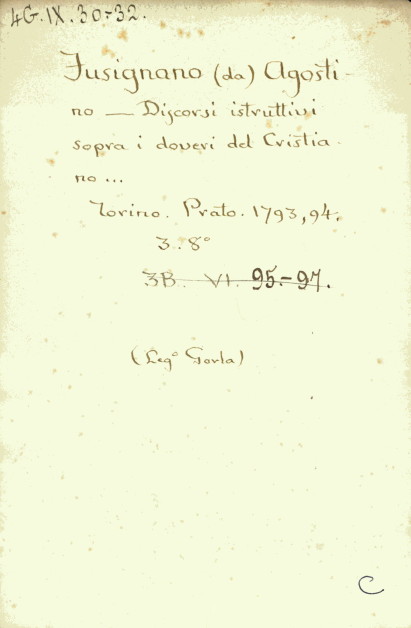 4G.IX.30-32.
Fusignano (da) Agosti-
no — Discorsi istruttivi
sopra i doveri del Cristia-
no...
Torino. Prato. 1793,94.
3. 8°
3B. VI. 95.-97.
(Leg° Gorla)
C